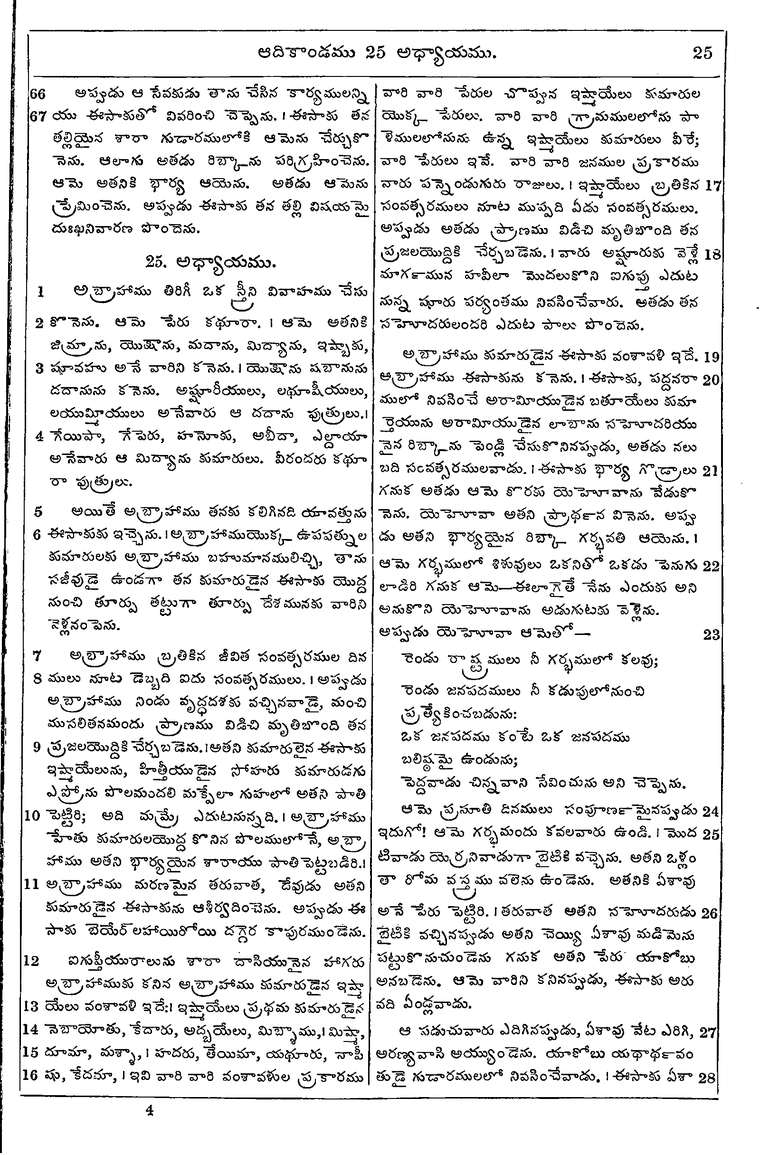 ఆదికాండము 25 అధ్యాయము. 25
66 అప్పుడు ఆ సేవకుడు తాను చేసిన కార్యములన్ని
67 యు ఈసాకుతో వివరించి చెప్పెను. । ఈసాకు తన
తల్లియైన శారా గుడారములోకి ఆమెను చేర్చుకొ
నెను. ఆలాగు అతడు రిబ్కాను పరిగ్రహించెను.
ఆమె అతనికి భార్య ఆయెను. అతడు ఆమెను
ప్రేమించెను. అప్పుడు ఈసాకు తన తల్లి విషయమై
దుఃఖనివారణ పొందెను.
25. అధ్యాయము.
1 అబ్రాహాము తిరిగీ ఒక స్త్రీని వివాహము చేసు
2 కొనెను. ఆమె పేరు కథూరా. । ఆమె అతనికి
జిమ్రాను, యొషాను, మదాను, మిద్యాను, ఇష్బాకు,
3 షూవహు అనే వారిని కనెను. । యొషాను షబానును
దదానును కనెను. అష్షూరీయులు, లథూషీయులు,
లయుమ్మీయులు అనేవారు ఆ దదాను పుత్రులు.।
4 గేయిపా, గేపెరు, హనోకు, అబీదా, ఎల్దాయా
అనేవారు ఆ మిద్యాను కుమారులు. వీరందరు కథూ
రా పుత్రులు.
5 అయితే అబ్రాహాము తనకు కలిగినది యావత్తును
6 ఈసాకుకు ఇచ్చెను. ।అబ్రాహాముయొక్క ఉపపత్నుల
కుమారులకు అబ్రాహాము బహుమానములిచ్చి, తాను
సజీవుడై ఉండగా తన కుమారుడైన ఈసాకు యొద్ద
నుంచి తూర్పు తట్టుగా తూర్పు దేశమునకు వారిని
వెళ్లనంపెను.
7 అబ్రాహాము బ్రతికిన జీవిత సంవత్సరముల దిన
8 ములు నూట డెబ్బది ఐదు సంవత్సరములు. । అప్పుడు
అబ్రాహాము నిండు వృద్ధదశకు వచ్చినవాడై, మంచి
ముసలితనమందు ప్రాణము విడిచి మృతిబొంది తన
9 ప్రజలయొద్దికి చేర్చబడెను. ।అతని కుమారులైన ఈసాకు
ఇష్మాయేలును, హిత్తీయుడైన సోహరు కుమారుడగు
ఎఫ్రోను పొలమందలి మక్పేలా గుహలో అతని పాతి
10 పెట్టిరి; అది మమ్రే ఎదుటనున్నది. । అబ్రాహాము
హేతు కుమారులయొద్ద కొనిన పొలములోనే, అబ్రా
హాము అతని భార్యయైన శారాయు పాతిపెట్టబడిరి.।
11 అబ్రాహాము మరణమైన తరువాత, దేవుడు అతని
కుమారుడైన ఈసాకును ఆశీర్వదించెను. అప్పుడు ఈ
సాకు బెయేర్‌లహాయిరోయి దగ్గెర కాపురముండెను.
12 ఐగుప్తీయురాలును శారా దాసియునైన హాగరు
అబ్రాహాముకు కనిన అబ్రాహాము కుమారుడైన ఇష్మా
13 యేలు వంశావళి ఇదే:। ఇష్మాయేలు ప్రథమ కుమారుడైన
14 నెబాయోతు, కేదారు, అద్బయేలు, మిబ్సాము,। మిష్మా,
15 దూమా, మశ్శా, । హదరు, తేయిమా, యథూరు, నాపీ
16 షు, కేదమా, । ఇవి వారి వారి వంశావళుల ప్రకారము
వారి వారి పేరుల చొప్పున ఇష్మాయేలు కుమారుల
యొక్క పేరులు. వారి వారి గ్రామములలోను పా
ళెములలోనును ఉన్న ఇష్మాయేలు కుమారులు వీరే;
వారి పేరులు ఇవే. వారి వారి జనముల ప్రకారము
వారు పన్నెండుగురు రాజులు. । ఇష్మాయేలు బ్రతికిన 17
సంవత్సరములు నూట ముప్పది ఏడు సంవత్సరములు.
అప్పుడు అతడు ప్రాణము విడిచి మృతిబొంది తన
ప్రజలయొద్దికి చేర్చబడెను. । వారు అష్షూరుకు వెళ్లే 18
మార్గమున హవీలా మొదలుకొని ఐగుప్తు ఎదుట
నున్న షూరు పర్యంతము నివసించేవారు. అతడు తన
సహోదరులందరి ఎదుట పాలు పొందెను.
అబ్రాహాము కుమారుడైన ఈసాకు వంశావళి ఇదే. 19
అబ్రాహాము ఈసాకును కనెను. । ఈసాకు, పద్దనరా 20
ములో నివసించే అరామీయుడైన బతూయేలు కుమా
ర్తెయును అరామీయుడైన లాబాను సహోదరియు
నైన రిబ్కాను పెండ్లి చేసుకొనినప్పుడు, అతడు నలు
బది సంవత్సరములవాడు. । ఈసాకు భార్య గొడ్రాలు 21
గనుక అతడు ఆమె కొరకు యెహోవాను వేడుకొ
నెను. యెహోవా అతని ప్రార్థన వినెను. అప్పు
డు అతని భార్యయైన రిబ్కా గర్భవతి ఆయెను. ।
ఆమె గర్భములో శిశువులు ఒకనితో ఒకడు పెనుగు 22
లాడిరి గనుక ఆమె—ఈలాగైతే నేను ఎందుకు అని
అనుకొని యెహోవాను అడుగుటకు వెళ్లెను.
అప్పుడు యెహోవా ఆమెతో— 23
రెండు రాష్ట్రములు నీ గర్భములో కలవు;
రెండు జనపదములు నీ కడుపులోనుంచి
ప్రత్యేకించబడును:
ఒక జనపదము కంటే ఒక జనపదము
బలిష్ఠమై ఉండును;
పెద్దవాడు చిన్నవాని సేవించును అని చెప్పెను.
ఆమె ప్రసూతి దినములు సంపూర్ణమైనప్పుడు 24
ఇదుగో! ఆమె గర్భమందు కవలవారు ఉండి. । మొద 25
టివాడు యెర్రనివాడుగా బైటికి వచ్చెను. అతని ఒళ్లం
తా రోమ వస్త్రము వలెను ఉండెను. అతనికి ఏశావు
అనే పేరు పెట్టిరి. । తరువాత అతని సహోదరుడు 26
బైటికి వచ్చినప్పుడు అతని చెయ్యి ఏశావు మడిమెను
పట్టుకొనుచుండెను గనుక అతని పేరు యాకోబు
అనబడెను. ఆమె వారిని కనినప్పుడు, ఈసాకు అరు
వది ఏండ్లవాడు.
ఆ పడుచువారు ఎదిగినప్పుడు, ఏశావు వేట ఎరిగి, 27
అరణ్యవాసి అయ్యుండెను. యాకోబు యథార్థవం
తుడై గుడారములలో నివసించేవాడు. । ఈసాకు ఏశా 28
4